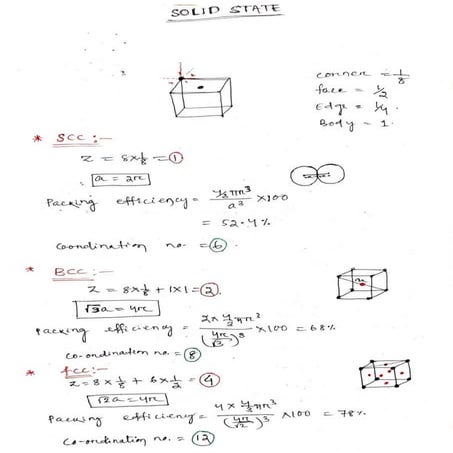 SOLID STATE
corner = 1/8
face = 1/2
Edge = 1/4.
Body = 1.
* SCC :-
Z = 8×1/8 = 1
a = 2r
Packing efficiency = 4/3 πr³ / a³ ×100
= 52.4%
Coordination no. = 6.
* BCC :-
Z = 8×1/8 + 1×1 = 2.
√3a = 4r
Packing efficiency = 2×4/3 πr³ / (4r/√3)³ ×100 = 68%
co-ordination no. = 8
* fcc :-
Z = 8×1/8 + 6×1/2 = 4
√2a = 4r
Packing efficiency = 4×4/3 πr³ / (4r/√2)³ ×100 = 78%.
Co-ordination no. = 12